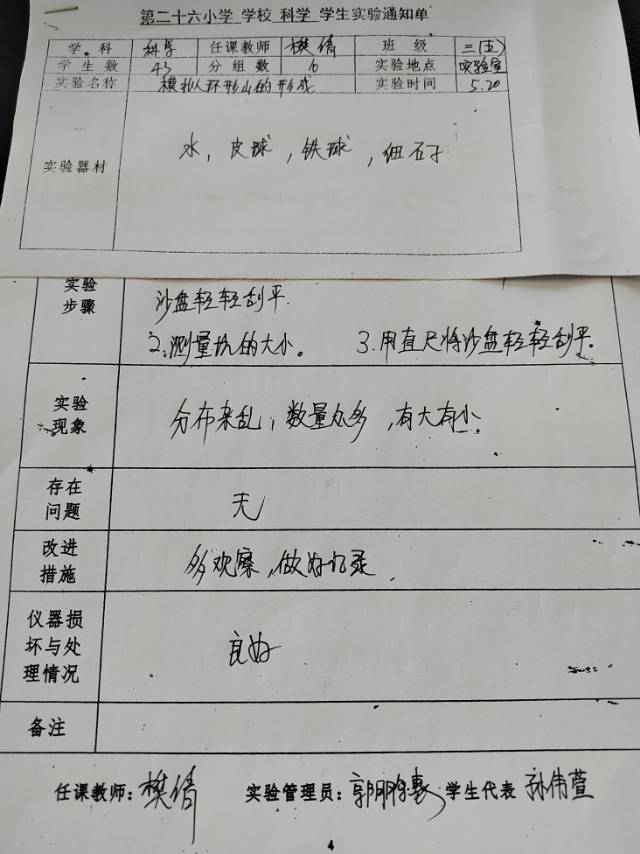 第二十六小学 学校 科学 学生实验通知单
学 科 科学 任课教师 樊倩 班 级 三(五)
学 生 数 43 分 组 数 10 实验地点 实验室
实验名称 模拟环形山的形成 实验时间 5.20
实验器材 水,皮球,铁球,细石子
实验步骤 沙盘轻轻刮平.
2.测量坑的大小。 3.用直尺将沙盘轻轻刮平。
实验现象 分布来乱,数量众多,有大有小.
存在问题 无
改进措施 多观察,做好记录.
仪器损坏与处理情况 良好
备注
任课教师:樊倩 实验管理员:郭 学生代表 孙伟萱
4